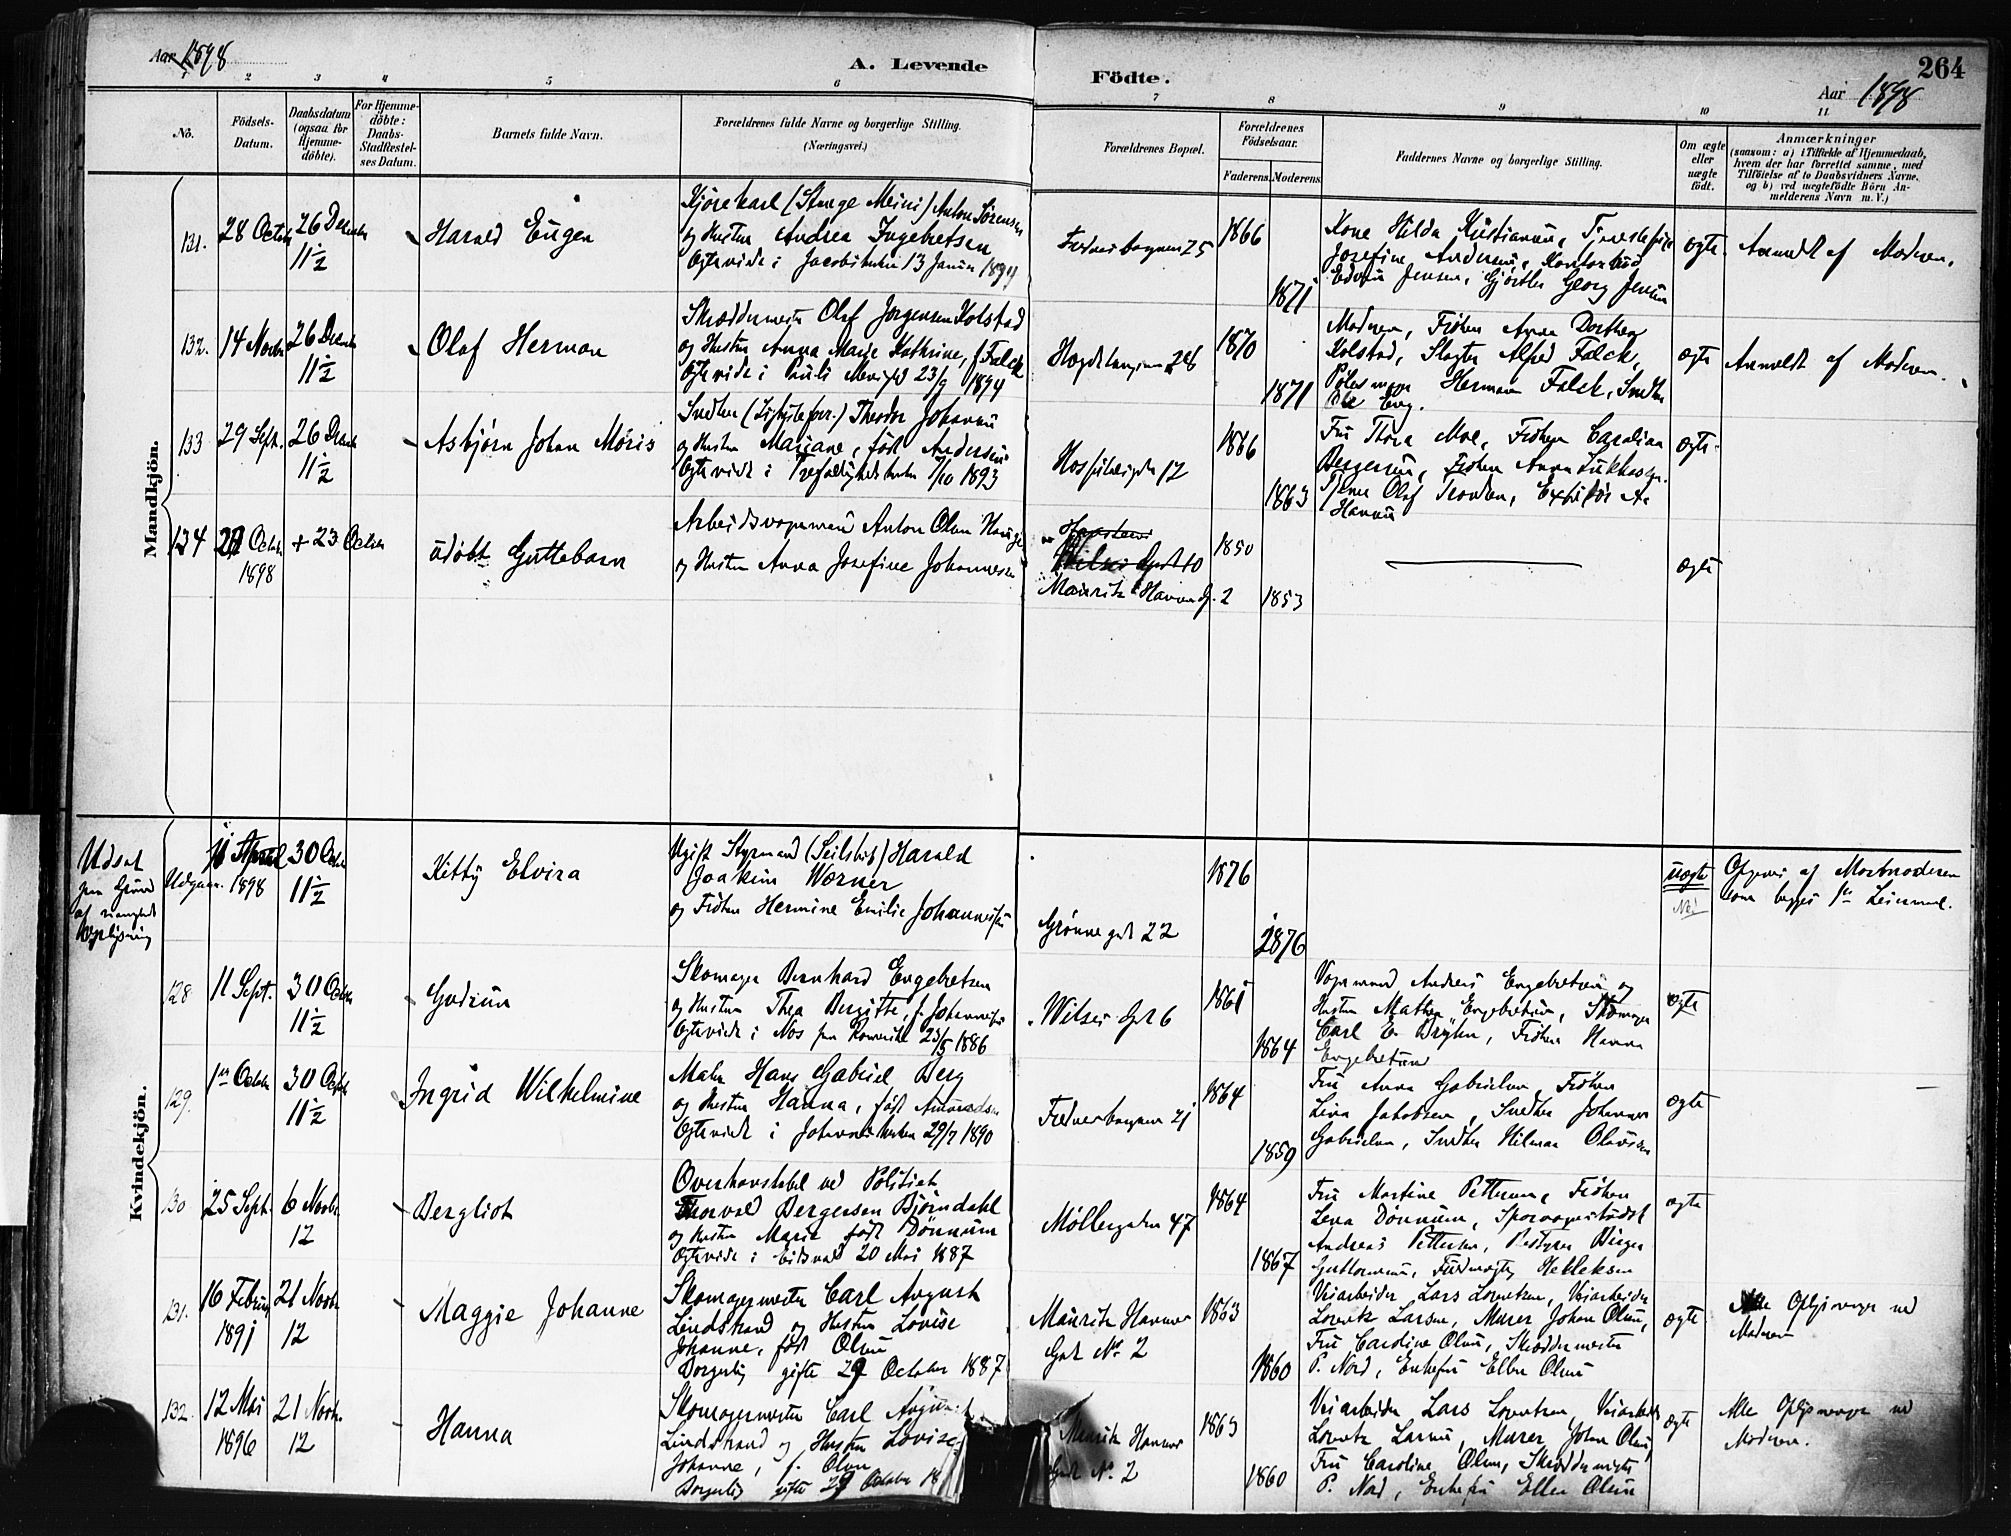 Aar 1898
A. Levende
Födte.
264
Aar 1898
2 3 4 5 6 7 8 9 10 11
No.
Födsels-
Datum.
Daabsdatum
(ogsaa for
Hjemme-
döbte).
For Hjemme-
döbte:
Daabs-
Stadfæstel-
ses Datum.
Barnets fulde Navn.
Forældrenes fulde Navne og borgerlige Stilling.
(Næringsvei.)
Forældrenes Bopæl.
Forældrenes
Födselsaar.
Faderens. Moderens.
Faddernes Navne og borgerlige Stilling.
Om ægte
eller
uægte
födt.
Anmærkninger
(saasom: a) i Tilfælde af Hjemmedaab,
hvem der har forrettet samme, med
Tilföielse af to Daabsvidners Navne,
og b) ved uegtefödte Börn An-
melderens Navn m. V.)
Mandkjön.
131.
28 Octob
26 Decemb
11½
Harald Eugen
Kjørekarl Anton Sørensen
og Hustru Andrea Ingebretsen
Ogteviede i Jacobskirken 13 Januar
25
1866
1871
Kone Hilda Kristiansen,
Josefine Andersen,
Jensen, Gjørtler Georg Jensen
ægte
Anmeldt af Moderen.
132.
14 Novbr
26 Decemb
11½
Olaf Herman
Skræddermester Olaf Jørgensen Kolstad
og Hustru Anna Marie Kathrine, f. Falck
Ogteviede i Pauli 23/9 1894
1870
1871
Moderen, Frøken Anna Dorthea
Kolstad, Slagter Alfred Falck,
Pølsemager Herman Falck, Snedker
ægte
Anmeldt af Moderen.
133
29 Sept.
26 Decemb
11½
Asbjørn Johan Moris
Snedker Theodor Johansen
og Hustru Mariane, født Andersen
Ogteviede i Trefoldighedskirken 1893
Hospitalsgaden 12
1866
1863
Fru Thora Moe, Frøken Carolina
Bergersen, Frøken Anna
Olaf
Hansen
ægte
134
Octob
1898
+ 23 Octob
udøbt Guttebarn
Arbeidsvognmand Anton Olsen
og Hustru Anna Josefine Johannesen
Wilses Gade 10
Mauritz Hansens G. 2
1850
1853
ægte
Kvindekjön.
Udsat
paa Grund
af manglende
Oplysning
Udgaar.
April
1898
30 Octob
11½
Kitty Elvira
Ugift Styrmand (Seilskib) Harald
Joakim Wørner
og Frøken Hermine Emilie Johannessen
Grønnegade 22
1876
1876
uægte
Nei
Opgivet af Mormoderen
som begges 1ste Leiermaal.
128
11 Sept.
30 Octob
11½
Gudrun
Skomager Bernhard Engebretsen
og Hustru Thea Birgitte, f. Johannesen
Ogteviede i Nes paa Romerike 23/5 1886
Wilses Gade 6
1861
1864
Vognmand Andreas Engebretsen og
Hustru Mathea Engebretsen, Skomager
Carl E. Frøken Hanna
Engebretsen
ægte
129.
1ste Octob
30 Octob
11½
Ingrid Wilhelmine
Maler Hans Gabriel Berg
og Hustru Hanna, født Amundsen
Ogteviede i Johanneskirken 29/7 1890
1864
1859
Fru Anna Gabrielsen, Frøken
Lina Jakobsen, Snedker Johannes
Gabrielsen, Snedker Hilmar Olaussen
ægte
130
25 Sept.
6 Novbr
12
Bergliot
Overkonstabel ved Politiet
Thorvald Bergersen Bjørndahl
og Hustru Marie født Dønnum
Ogteviede i Eidsvold 20 Mai 1887
Møllergaden 47
1864
1867
Fru Martine Pettersen, Frøken
Lena Dønnum,
Andreas Pettersen, Bestyrer Birger
Guttormsen, Helleksen
ægte
131.
16 Februar
1891
21 Novbr
12
Maggie Johanne
Skomagermester Carl August
Lindstrand og Hustru Lovise
Johanne, født Olsen
Borgerlig gifte 29 October 1887
Mauritz Hansens
Gade No. 2
1863
1860
Veiarbeider Lars Lorentzen, Veiarbeider
Lorentz Larsen, Murer Johan Olsen,
Fru Caroline Olsen, Skræddermester
P. Nord, Enkefru Ellen Olsen
ægte
Alle Oplysninger ved
Moderen
132.
12 Mai
1896
21 Novbr.
12
Hanna
Skomagermester Carl August
Lindstrand og Hustru Lovise
Johanne, f. Olsen
Borgerlig gifte 29 October 18
Mauritz Hansens
Gade No. 2
1863
1860
Veiarbeider Lars Lorentzen, Veiarbeider
Lorentz Larsen, Murer Johan Olsen,
Fru Caroline Olsen, Skræddermester
P. Nord, Enkefru Ellen Olsen
ægte
Alle Oplysninger ved
Moderen.